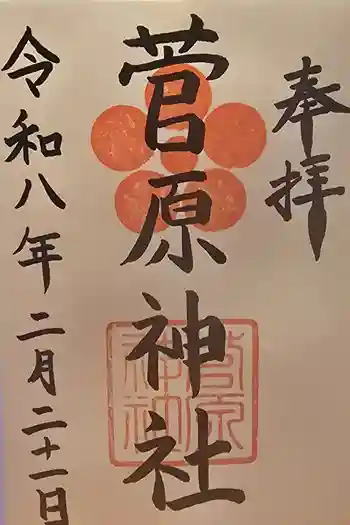 奉拝
菅原神社
令和八年二月二十一日